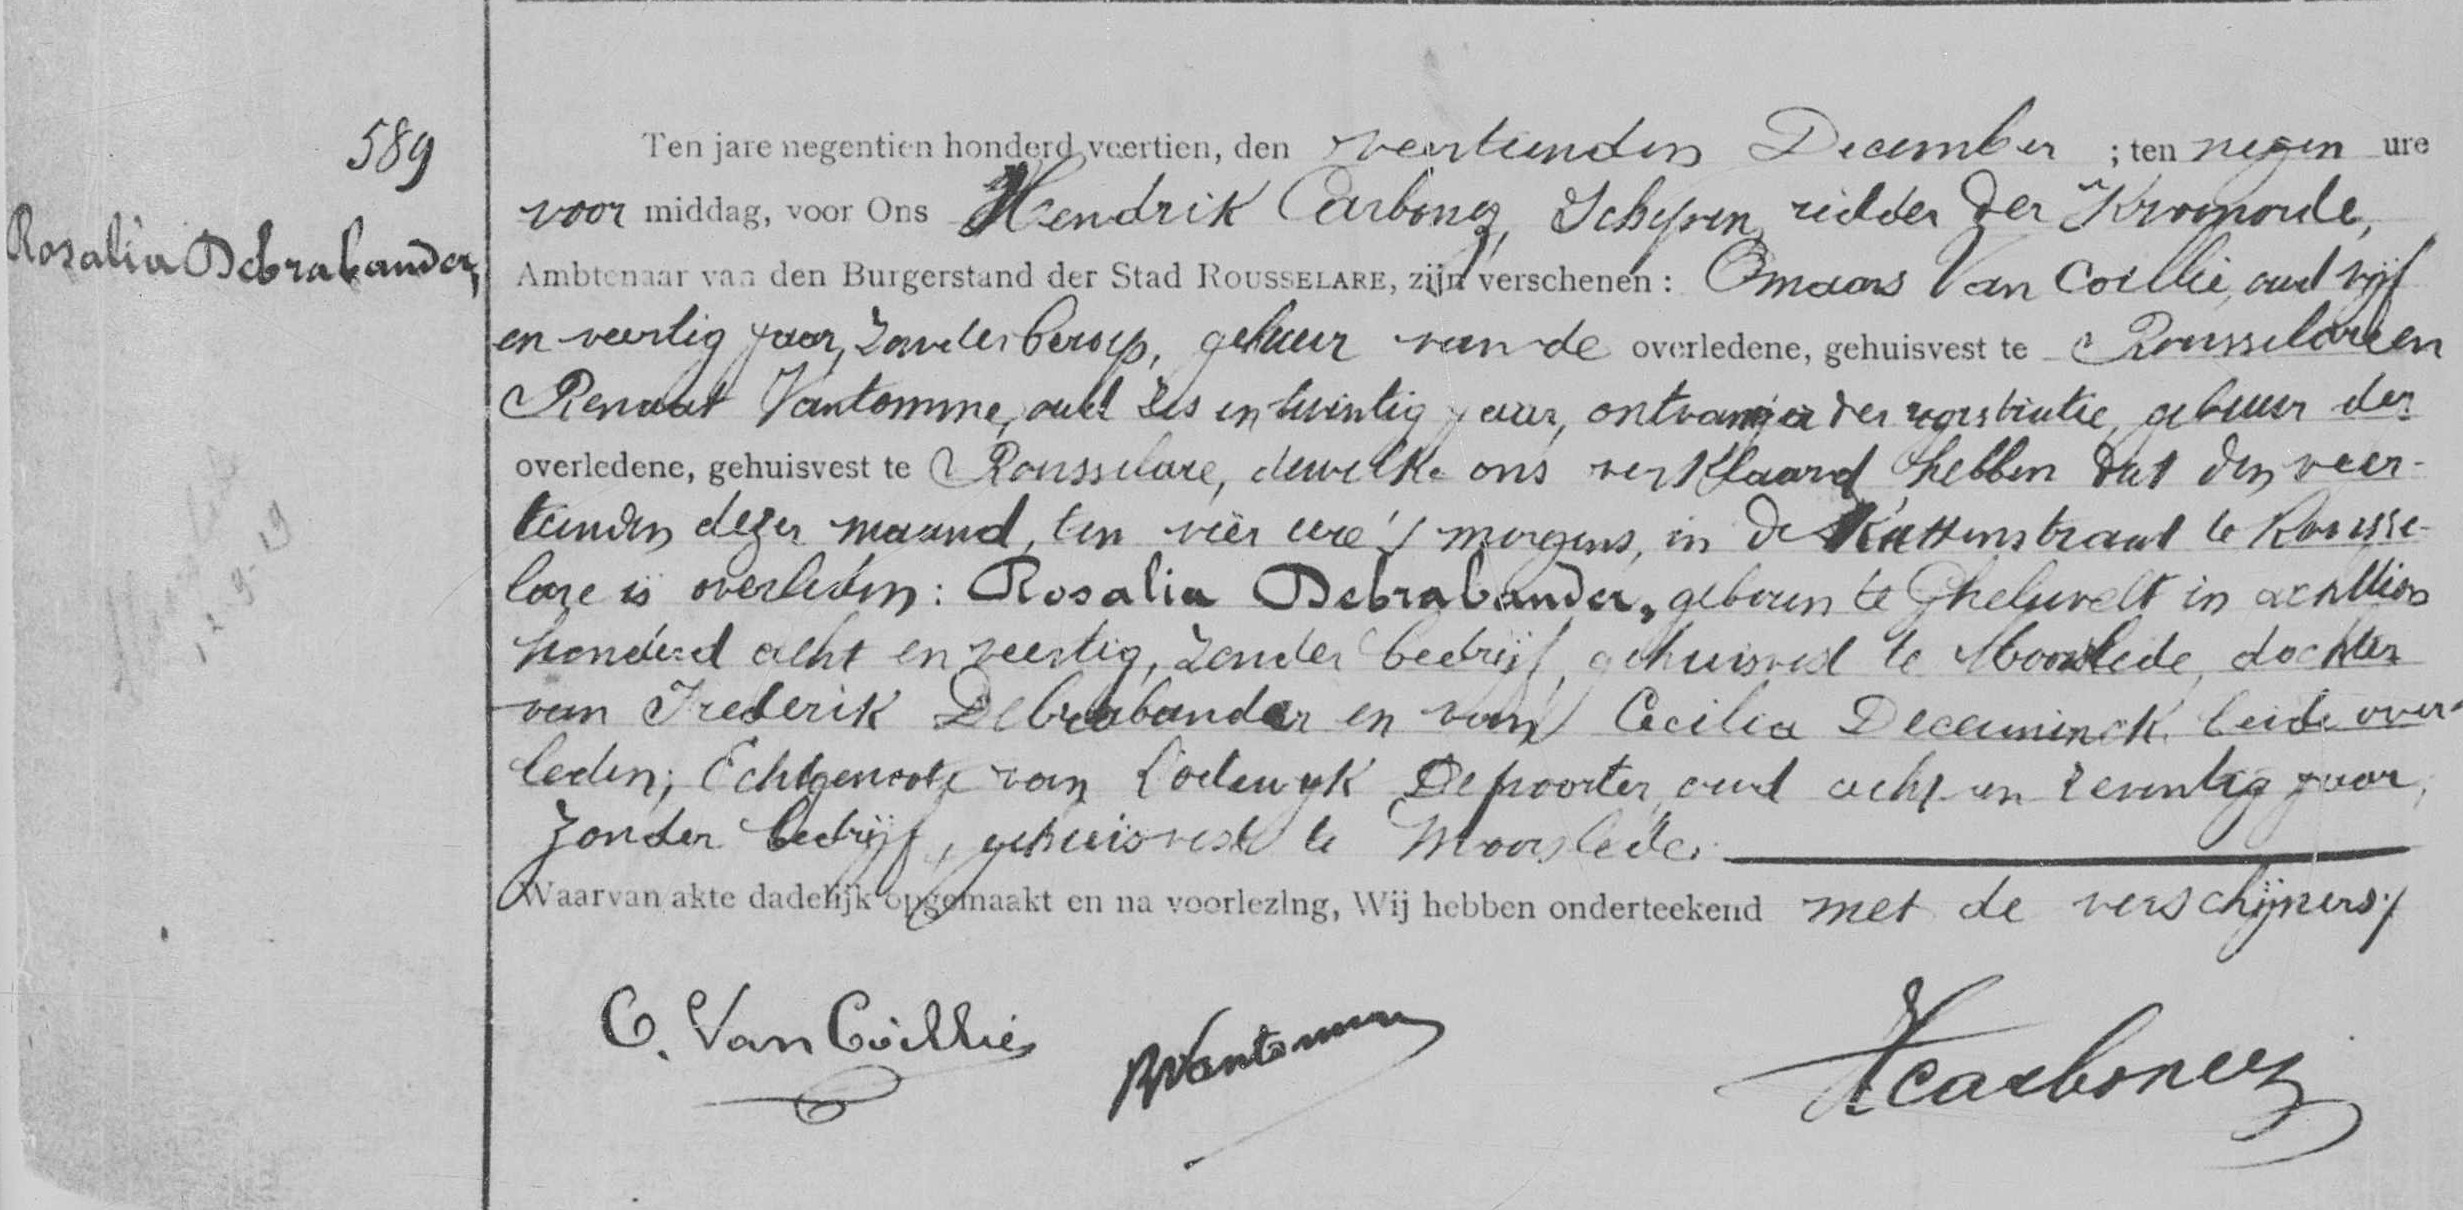 589
Rosalia Debrabander,
Ten jare negentien honderd veertien, den veertienden December ; ten negen ure
voor middag, voor Ons Hendrik Carbonez, Schepen, ridder der Kroonorde,
Ambtenaar van den Burgerstand der Stad ROUSSELARE, zijn verschenen : Omaars Van Coillie, oud vijf
en veertig jaar, zonder beroep, gebuur van de overledene, gehuisvest te Rousselare en
Renaat Vantomme, oud zes en twintig jaar, ontvanger der registratie, gebuur der
overledene, gehuisvest te Rousselare, dewelke ons verklaard hebben dat den veer-
tienden dezer maand, ten vier ure 's morgens, in de Kattenstraat te Rousse-
lare is overleden : Rosalia Debrabander, geboren te Gheluvelt in achttien
honderd acht en veertig, zonder bedrijf, gehuisvest te Moorslede, dochter
van Frederik Debrabander en van Cecilia Deceuninck, beide over-
leden; Echtgenoote van Lodewyk Depoorter, oud acht en zeventig jaar,
zonder bedrijf, gehuisvest te Moorslede.
Waarvan akte dadelijk opgemaakt en na voorlezing, Wij hebben onderteekend met de verschijners./
C. Van Coillie
R Vantomme
H Carbonez